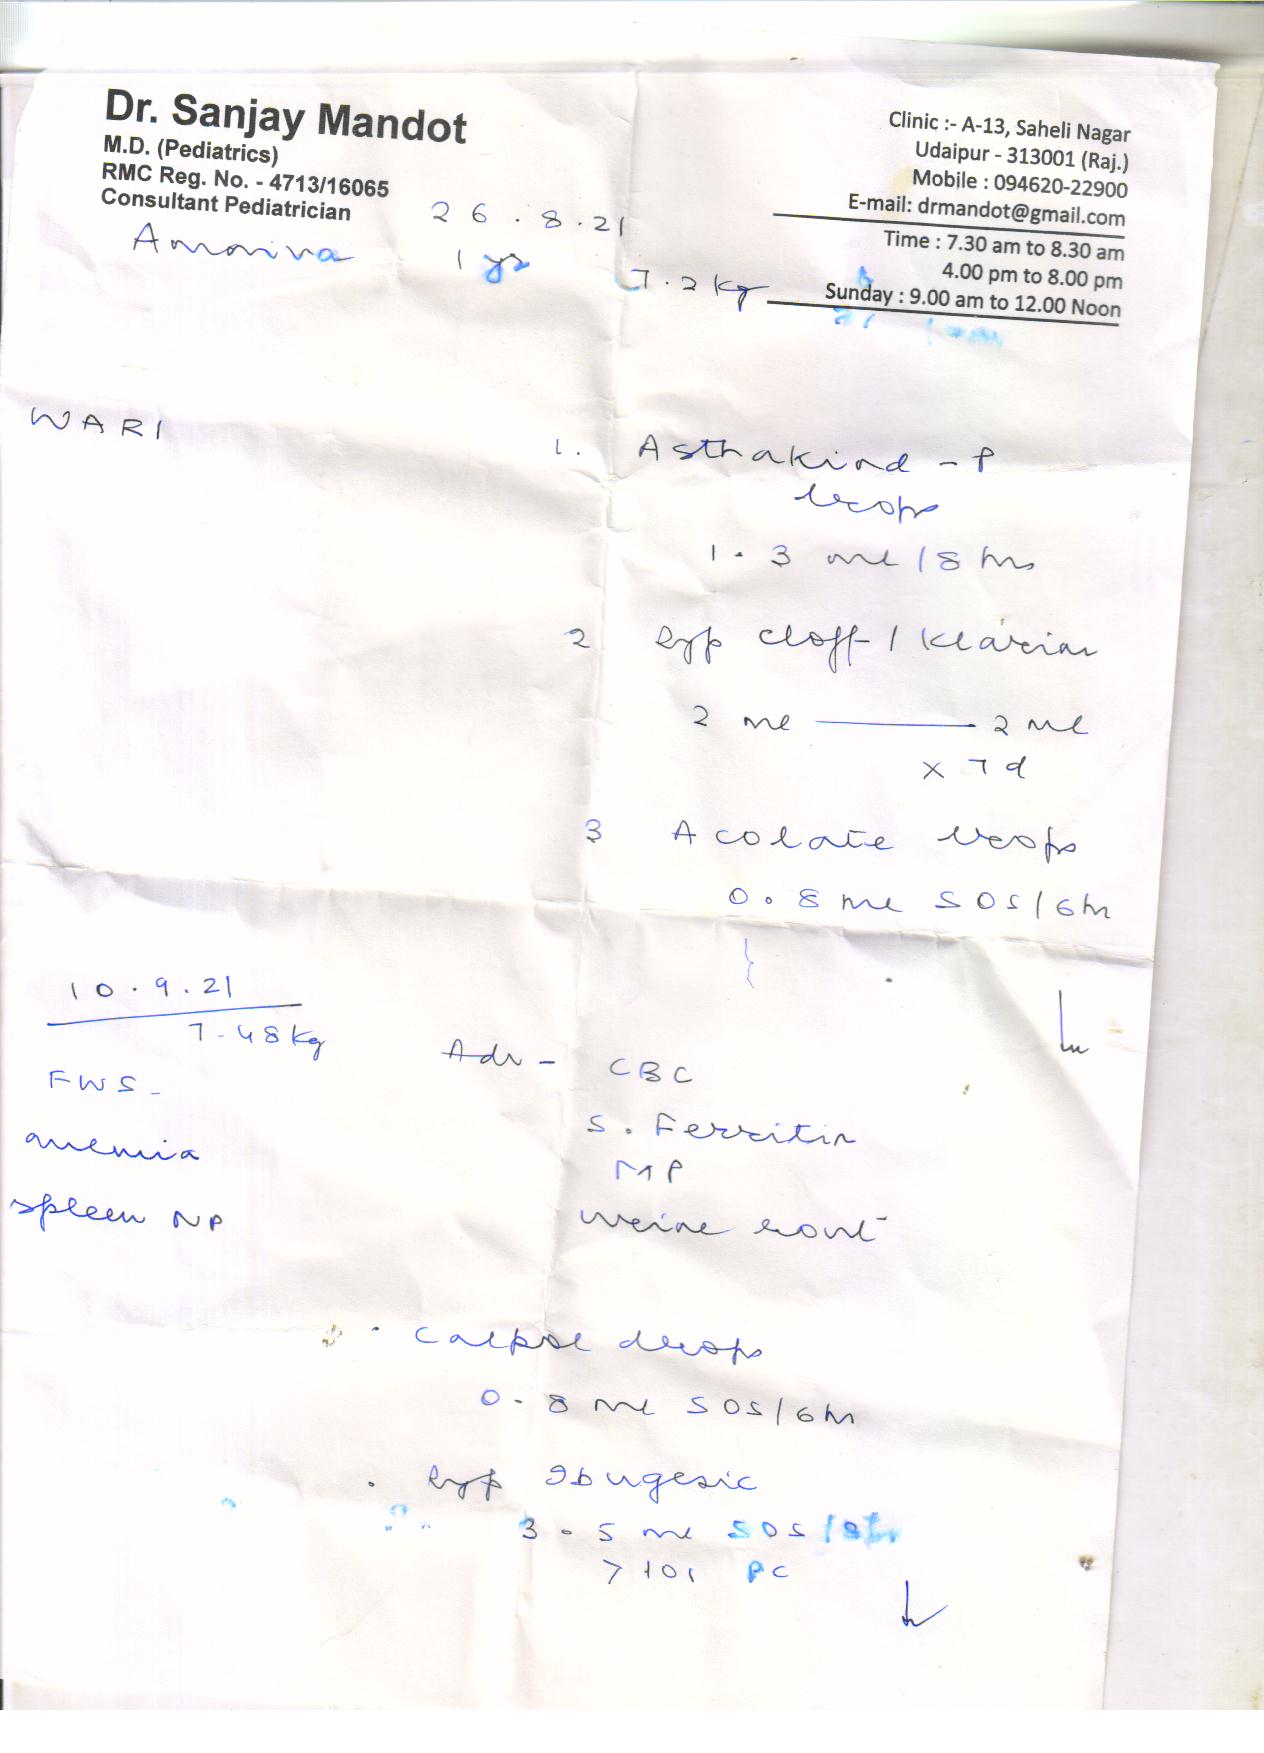 Dr. Sanjay Mandot
M.D. (Pediatrics)
RMC Reg. No. - 4713/16065
Consultant Pediatrician
Clinic :- A-13, Saheli Nagar
Udaipur - 313001 (Raj.)
Mobile : 094620-22900
E-mail: drmandot@gmail.com
Time : 7.30 am to 8.30 am
4.00 pm to 8.00 pm
Sunday : 9.00 am to 12.00 Noon
26.8.21
1 yr
7.2 kg
WARI
1. Asthakind - P
drops
1.3 ml / 8 hrs
2 Syp Cloff- / Klarian
2 ml — 2 ml
x 7 d
3 Acolate drops
0.8 ml SOS / 6 hr
10.9.21
7.48 kg
FWS -
anemia
spleen NP
Adv - CBC
S. Ferritin
MP
urine rout
. Calpol drops
0.8 ml SOS / 6 hr
. Syp Ibugesic
3.5 ml SOS / 8 hr
> 101 PC